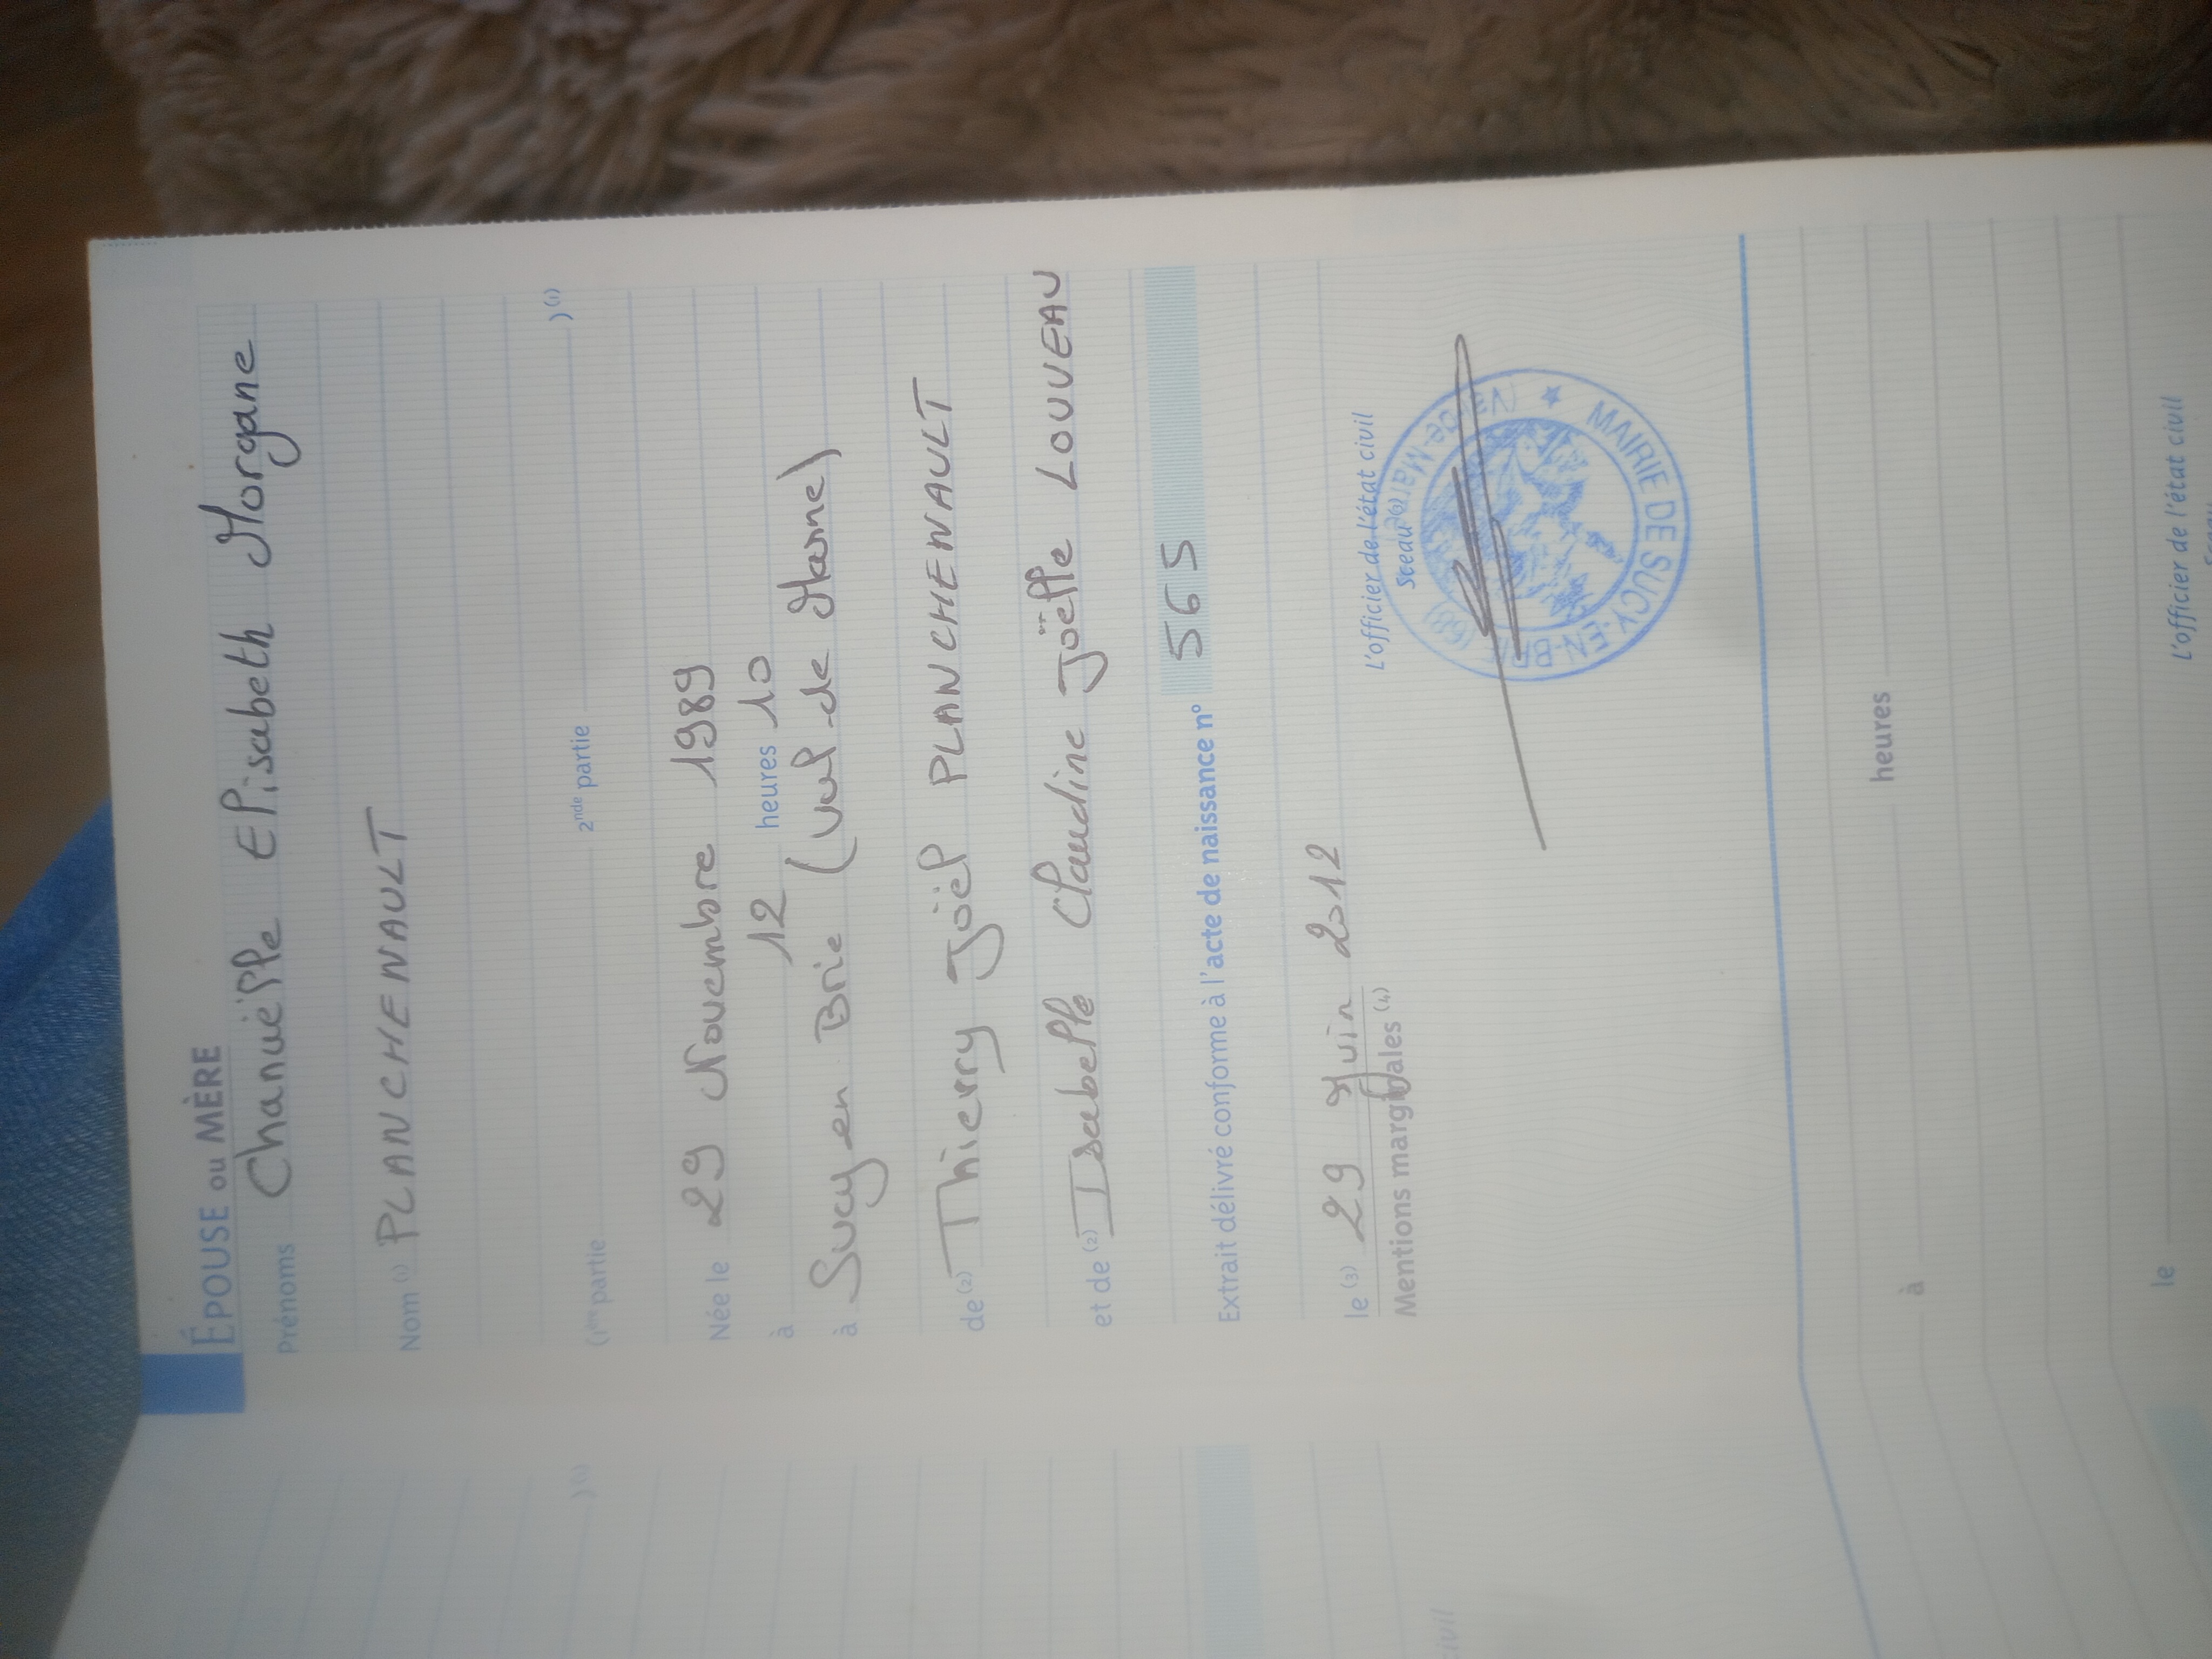 ÉPOUSE ou MÈRE
Prénoms Chanuëlle Elisabeth Morgane
Nom (1) PLANCHENAULT
(1ère partie 2nde partie )(1)
Née le 29 Novembre 1989
à 12 heures 10
à Sucy en Brie (Val-de Marne)
de (2) Thierry Joël PLANCHENAULT
et de (2) Isabelle Claudine Joëlle LOUVEAU
Extrait délivré conforme à l'acte de naissance n° 565
le (3) 29 Juin 2012
L'officier de l'état civil
Sceau (3)
Mentions marginales (4)
MAIRIE DE SUCY-EN-BRIE
(Val-de-Marne)
à heures
le
L'officier de l'état civil
)(1)
civil